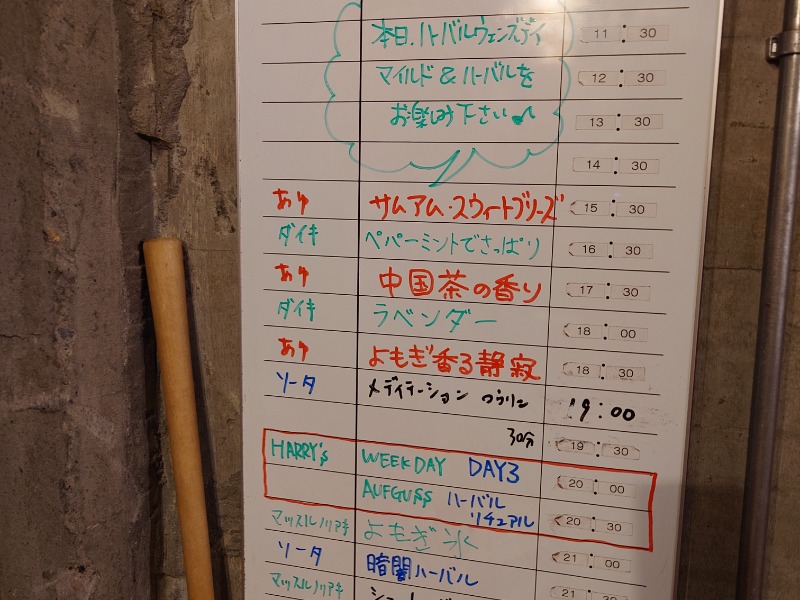 本日.ハーバルウェンズデイ 11:30
マイルド&ハーバルを 12:30
お楽しみ下さい♪ 13:30
14:30
あゆ サムアム・スウィートブリーズ 15:30
ダイキ ペパーミントでさっぱり 16:30
あゆ 中国茶の香り 17:30
ダイキ ラベンダー 18:00
あゆ よもぎ香る静寂 18:30
ソータ メディテーション 19:00
30分 19:30
HARRY's WEEKDAY DAY3 20:00
AUFGUSS ハーバル
リチュアル 20:30
マッスルノリアキ よもぎ氷 21:00
ソータ 暗闇ハーバル
マッスルノリアキ 21:30